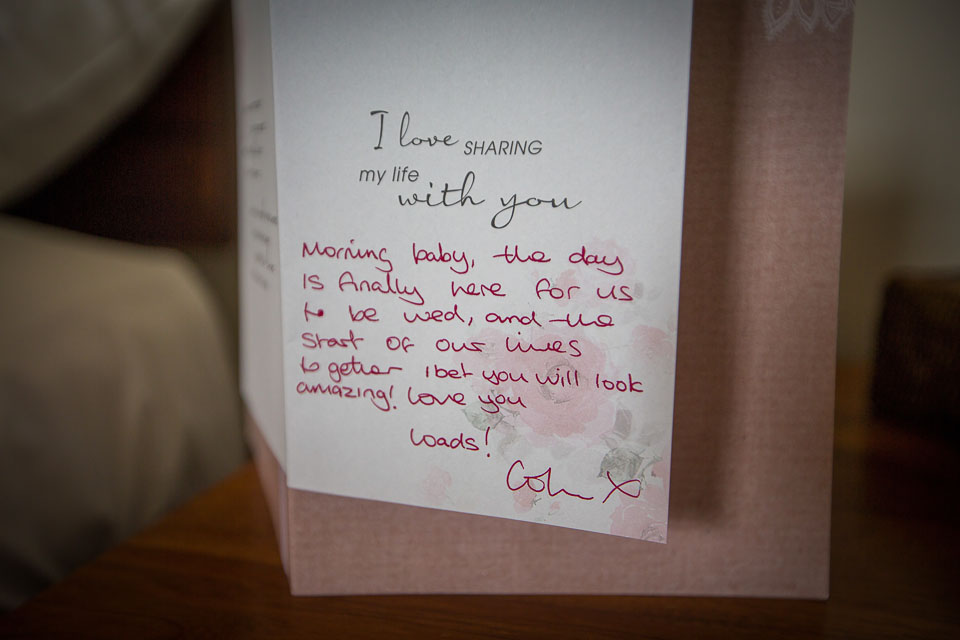 I love SHARING
my life
with you
Morning baby, the day
is finally here for us
to be wed, and the
start of our lives
together I bet you will look
amazing! Love you
Loads!
Colin X